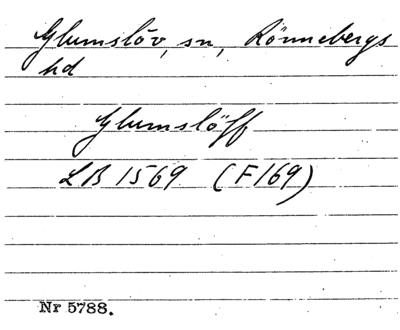 Glumslöv, sn, Rönnebergs
hd
Glumslöff
LB 1569 (F169)
Nr 5788.